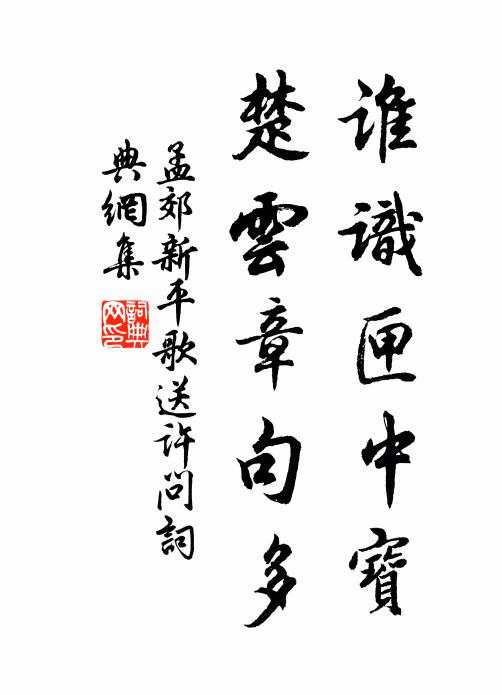 誰識匣中寶
楚雲章句多
孟郊新平歌送許問詞
典網集
詞典
网印